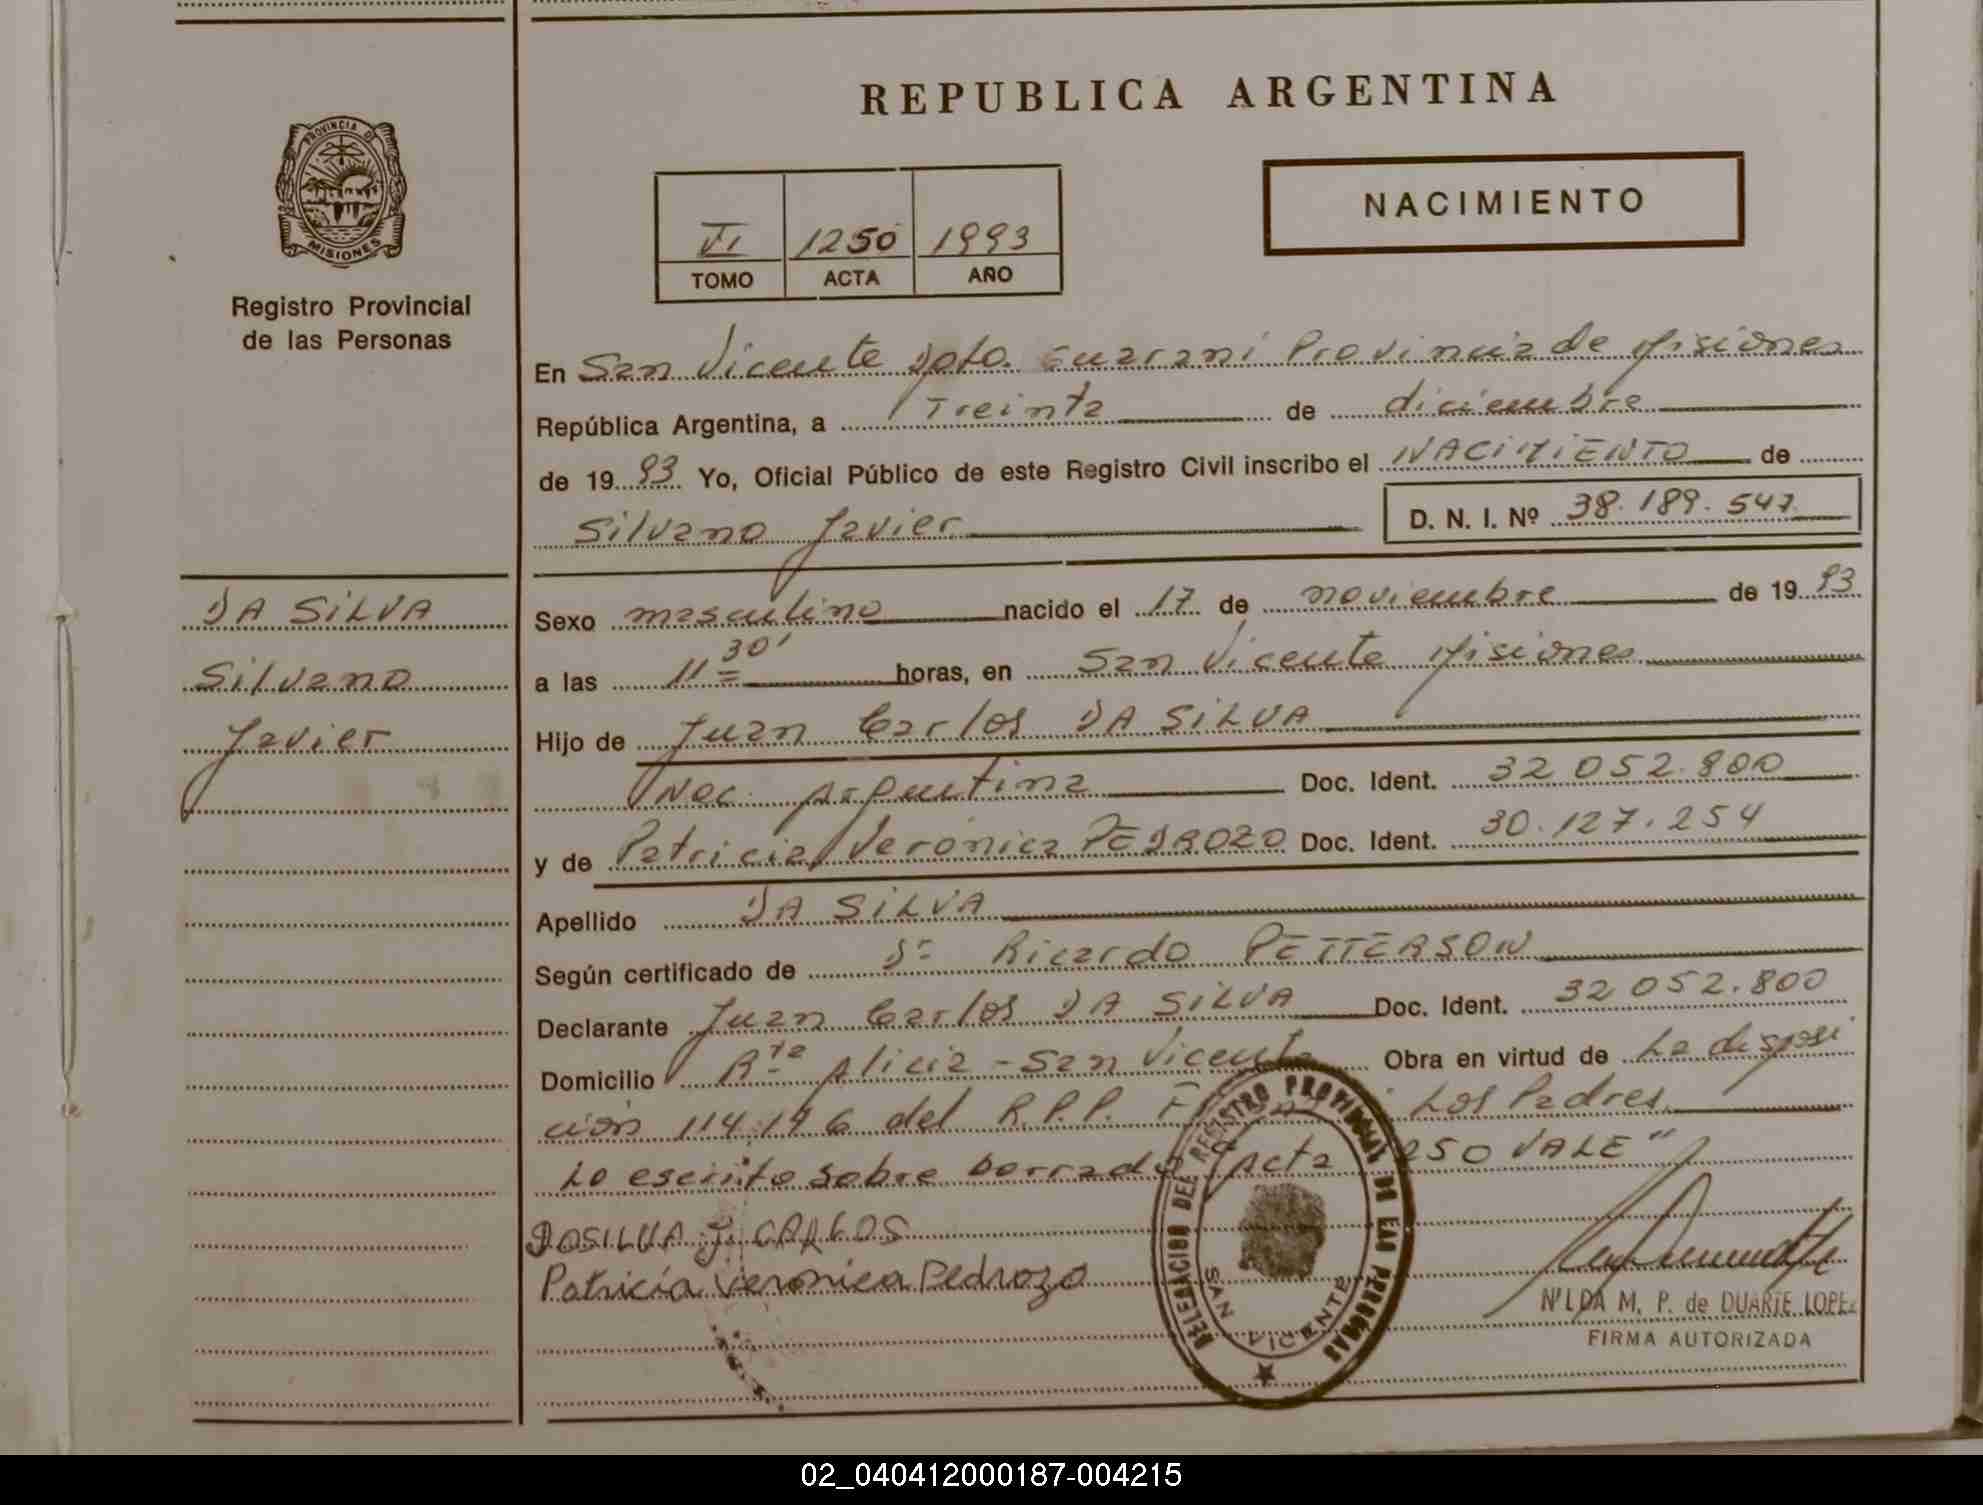 REPUBLICA ARGENTINA
PROVINCIA DE
MISIONES
Registro Provincial
de las Personas
VI 1250 1993
TOMO ACTA AÑO
NACIMIENTO
En San Vicente Dpto. Guaraní Provincia de Misiones
República Argentina, a Treinta de diciembre
de 1993 Yo, Oficial Público de este Registro Civil inscribo el NACIMIENTO de
Silvano Javier D. N. I. Nº 38.189.547
DA SILVA
Silvano
Javier
Sexo masculino nacido el 17 de noviembre de 1993
a las 11 30' horas, en San Vicente Misiones
Hijo de Juan Carlos DA SILVA
Nac. Argentina Doc. Ident. 32 052.800
y de Patricia Verónica PEDROZO Doc. Ident. 30.127.254
Apellido DA SILVA
Según certificado de Dr Ricardo PETTERSON
Declarante Juan Carlos DA SILVA Doc. Ident. 32 052.800
Domicilio Rta Alicia - San Vicente Obra en virtud de La disposi
ción 114/ del R.P.P. Los Padres
Lo escrito sobre borrado "Acta 250 VALE"
DASILVA J. CARLOS
Patricia Veronica Pedrozo
DELEGACION DEL REGISTRO PROVINCIAL DE LAS PERSONAS
SAN VICENTE
NILDA M. P. de DUARTE LOPEZ
FIRMA AUTORIZADA
02_040412000187-004215